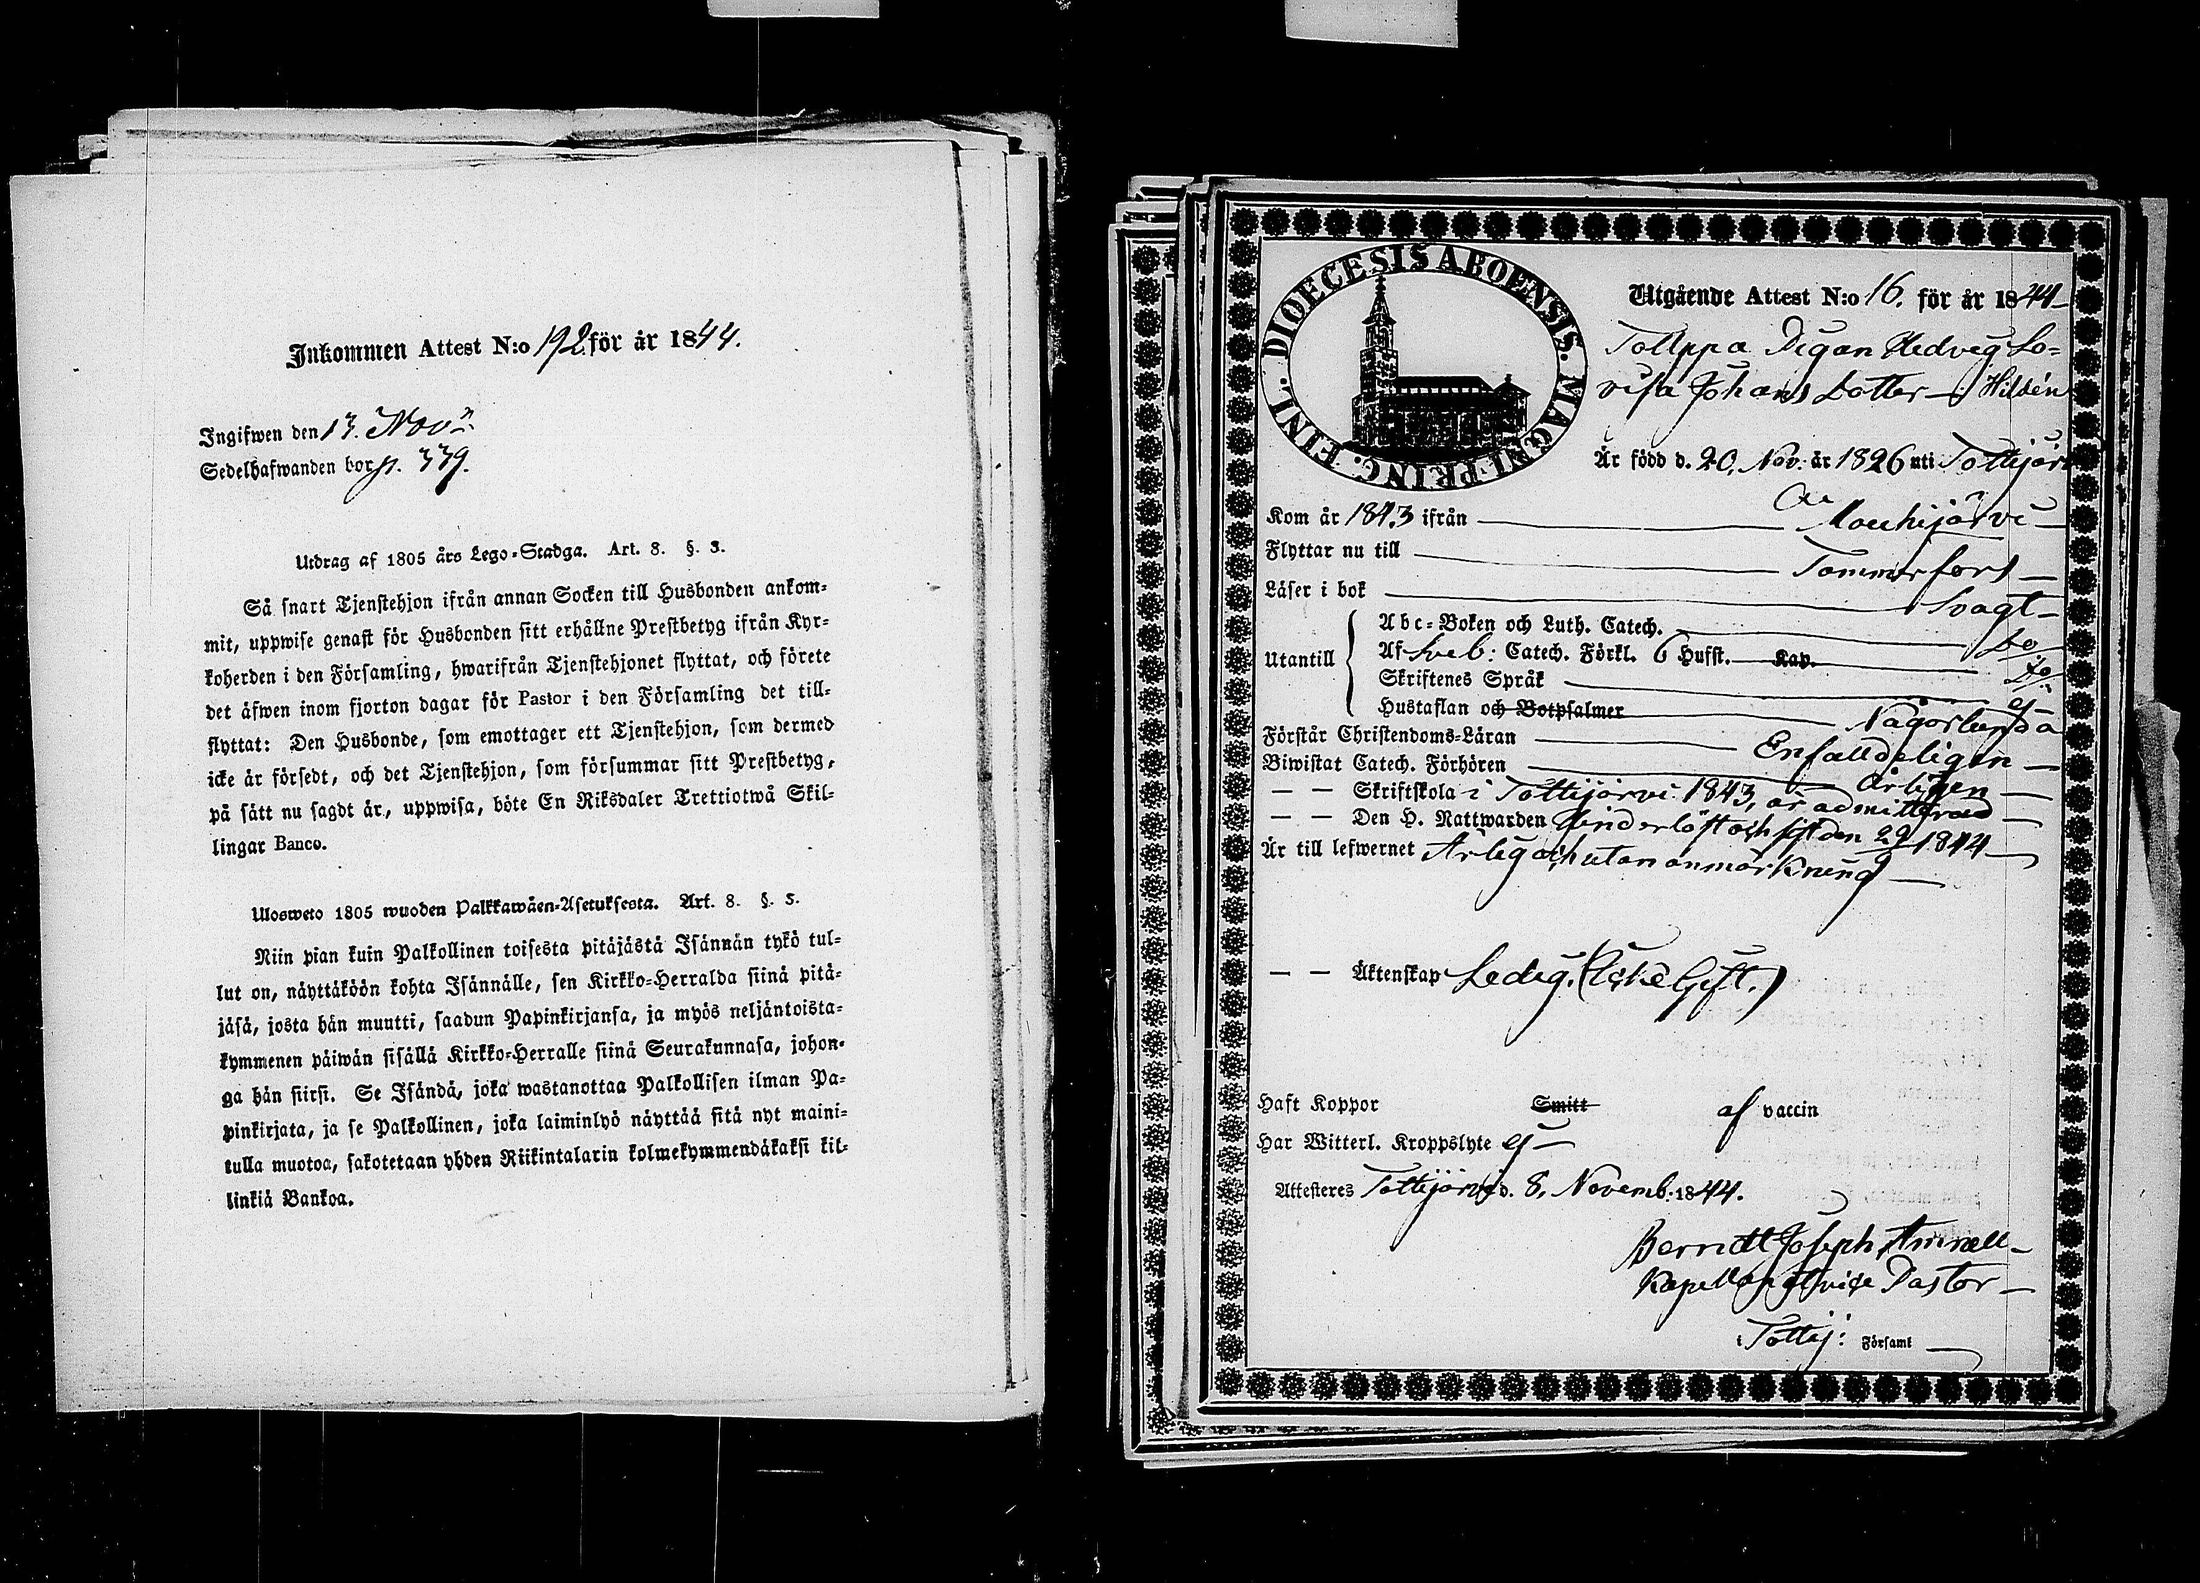 Inkommen Attest N:o 192 för år 1844.
Ingifwen den 13. Nov:
Sedelhafwanden bor p. 339.
Utdrag af 1805 års Lego-Stadga. Art. 8. §. 3.
Så snart Tjenstehjon ifrån annan Socken till Husbonden ankom-
mit, uppwise genast för Husbonden sitt erhållne Prestbetyg ifrån Kyr-
koherden i den Församling, hwarifrån Tjenstehjonet flyttat, och förete
det äfwen inom fjorton dagar för Pastor i den Församling det till-
flyttat: Den Husbonde, som emottager ett Tjenstehjon, som dermed
icke är försedt, och det Tjenstehjon, som försummar sitt Prestbetyg,
på sätt nu sagdt är, uppwisa, böte En Riksdaler Trettiotwå Skil-
lingar Banco.
Ulosweto 1805 wuoden Palkkawäen-Asetuksesta. Art. 8. §. 3.
Niin pian kuin Palkollinen toisesta pitäjästä Isännän tykö tul-
lut on, näyttäköön kohta Isännälle, sen Kirkko-Herralda siinä pitä-
jäsä, josta hän muutti, saadun Papinkirjansa, ja myös neljäntoista-
kymmenen päiwän sisällä Kirkko-Herralle siinä Seurakunnasa, johon-
ga hän siirsi. Se Isändä, joka wastanottaa Palkollisen ilman Pa-
pinkirjata, ja se Palkollinen, joka laiminlyö näyttää sitä nyt maini-
tulla muotoa, sakotetaan yhden Riikintalarin kolmekymmendäkaksi kil-
linkiä Bankoa.
DIOECESIS ABOENSIS. MAGNI PRINC. FINL.
Utgående Attest N:o 16. för år 1844
Tollppa Pigan Hedvig Lo-
visa Johans Dotter Hildén
Är född d. 20. Nov. år 1826 uti Tottijärvi
Kom år 1843 ifrån Mouhijärvi
Flyttar nu till Tammerfors
Läser i bok Svagt
Utantill
Abc-Boken och Luth. Catech. Do
Af Sveb: Catech. Förkl. 6 Hufst. Kap. Do
Skriftenes Språk ej
Hustaflan och Botpsalmer Någorlunda
Förstår Christendoms-Läran Enfalldeligen
Biwistat Catech. Förhören Årligen
— — Skriftskola i Tottijärvi 1843, är admitterad
— — Den H. Nattwarden Hinderlöst och sist den 29 1844
Är till lefwernet Ärlig och utan anmärkning
— — Äktenskap Ledig. (Icke Gift.)
Haft Koppor Smitt af vaccin
Har Witterl. Kroppslyte ej
Attesteres Tottijärvi d. 8. Novemb: 1844.
Berndt Joseph Amnell
Kapellan et vice Pastor
i Tottij: Församl